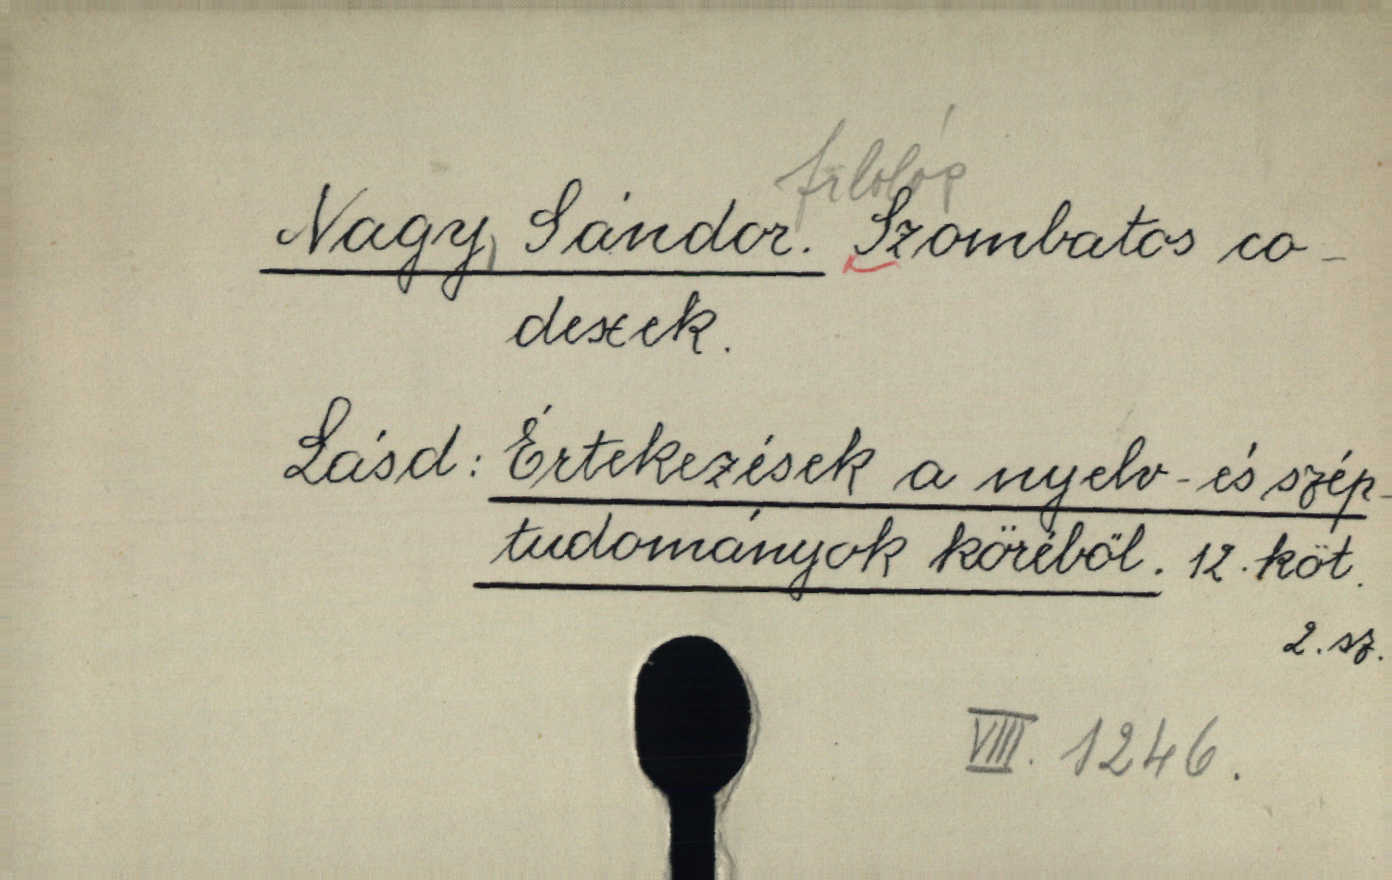 filológ
Nagy, Sándor. Szombatos co-
dexek.
Lásd: Értekezések a nyelv- és szép-
tudományok köréből. 12. köt.
2. sz.
VIII. 1246.